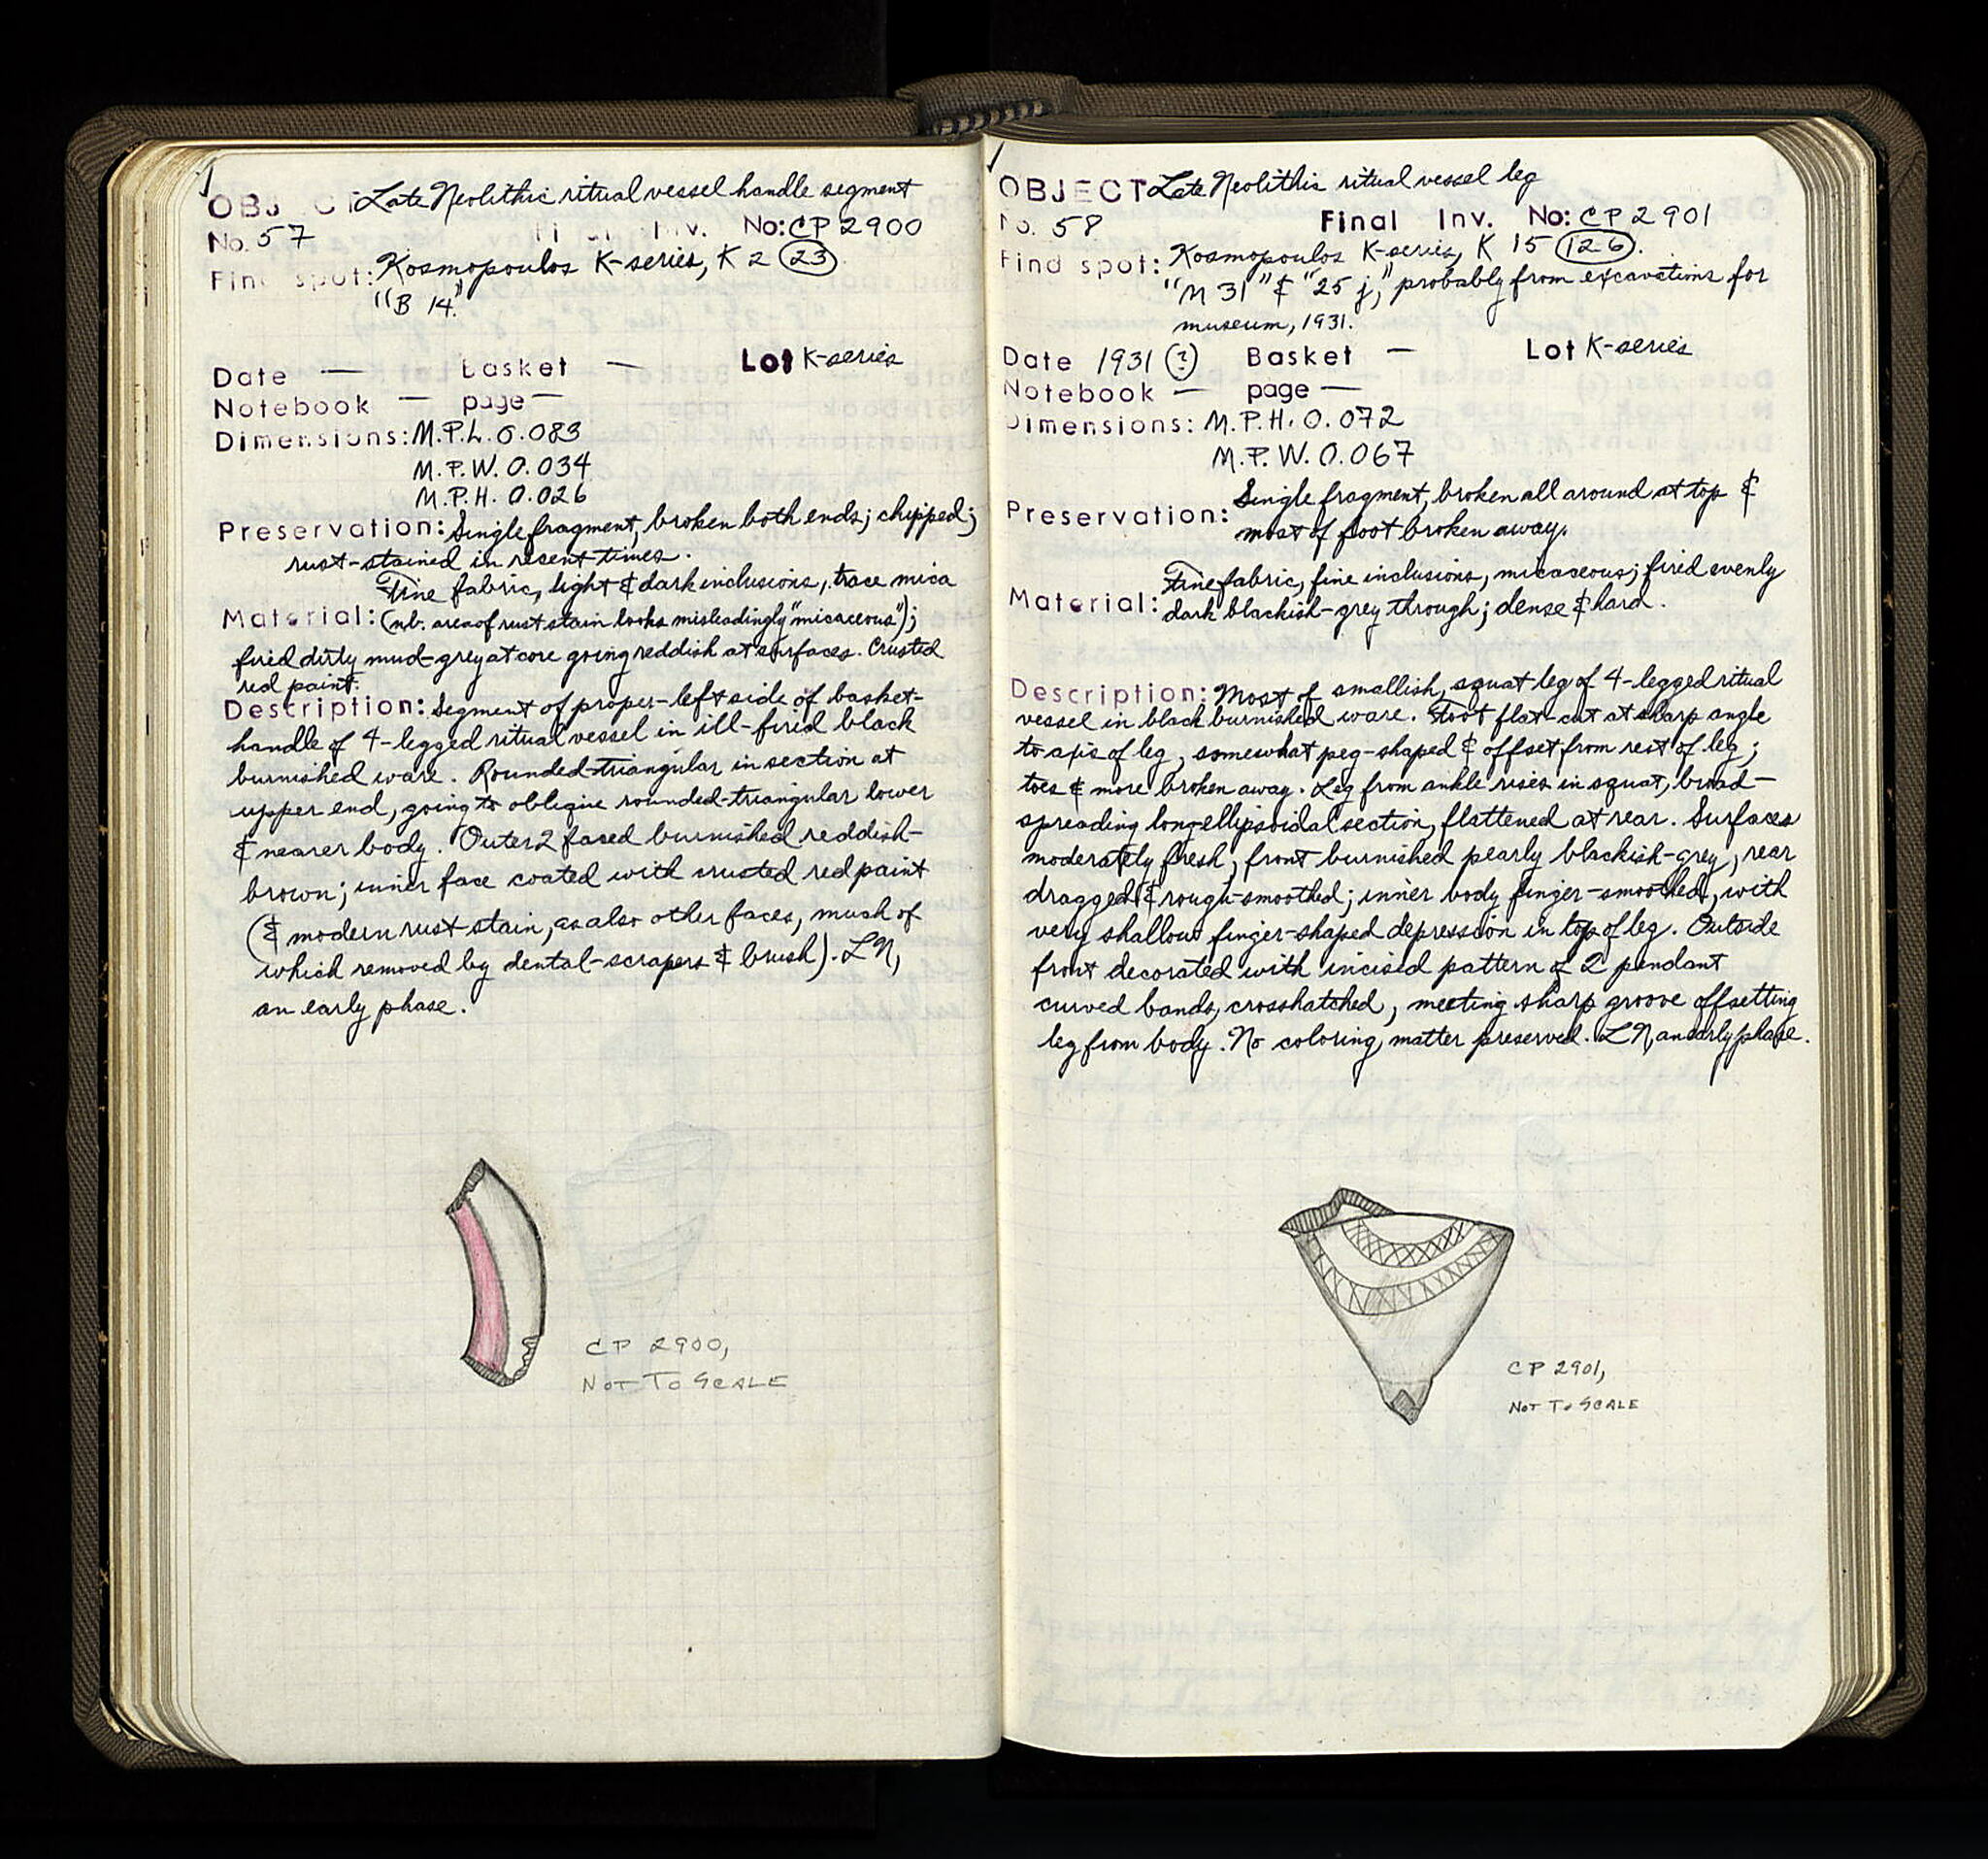 ✓
OBJECT Late Neolithic ritual vessel handle segment
No. 57 Final Inv. No: CP 2900
Find spot: Kosmopoulos K-series, K 2 (23).
"B 14."
Date — Basket — Lot K-series
Notebook — page —
Dimensions: M.P.L. 0.083
M.P.W. 0.034
M.P.H. 0.026
Preservation: Single fragment, broken both ends; chipped;
rust-stained in resent times.
Fine fabric, light & dark inclusions, trace mica
Material: (nb. area of rust stain looks misleadingly "micaceous");
fired dirty mud-grey at core going reddish at surfaces. Crusted
red paint.
Description: Segment of proper-left side of basket-
handle of 4-legged ritual vessel in ill-fired black
burnished ware. Rounded-triangular in section at
upper end, going to oblique rounded-triangular lower
& nearer body. Outer 2 faced burnished reddish-
brown; inner face coated with crusted red paint
(& modern rust stain, as also other faces, much of
which removed by dental-scrapers & brush). LN,
an early phase.
CP 2900,
NOT TO SCALE
✓
OBJECT Late Neolithic ritual vessel leg
No. 58 Final Inv. No: CP 2901
Find spot: Kosmopoulos K-series, K 15 (126).
"M 31" & "25 j," probably from excavations for
museum, 1931.
Date 1931 (?) Basket — Lot K-series
Notebook — page —
Dimensions: M.P.H. 0.072
M.P.W. 0.067
Single fragment, broken all around at top &
Preservation: most of foot broken away.
Fine fabric, fine inclusions, micaceous; fired evenly
Material: dark blackish-grey through; dense & hard.
Description: Most of smallish, squat leg of 4-legged ritual
vessel in black burnished ware. Foot flat-cut at sharp angle
to axis of leg, somewhat peg-shaped & offset from rest of leg;
toes & more broken away. Leg from ankle rises in squat, broad-
spreading long-ellipsoidal section, flattened at rear. Surfaces
moderately fresh; front burnished pearly blackish-grey, rear
dragged & rough-smoothed; inner body finger-smoothed, with
very shallow finger-shaped depression in top of leg. Outside
front decorated with incised pattern of 2 pendant
curved bands, crosshatched, meeting sharp groove offsetting
leg from body. No coloring matter preserved. LN, an early phase.
CP 2901,
NOT TO SCALE